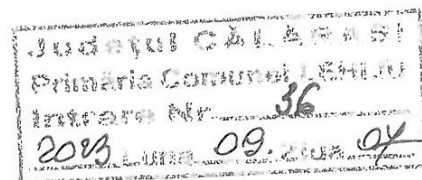 Județul CĂLĂRAȘI
Primăria Comunei LEHLIU
Intrare Nr. 36
2023 Luna 09. Ziua 04